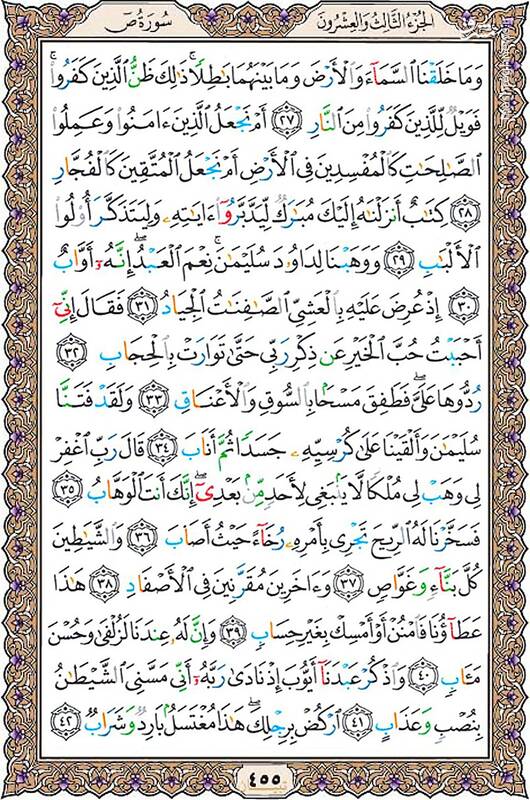 الجزء الثالث والعشرون سورة ص
وَمَا خَلَقْنَا السَّمَآءَ وَالْأَرْضَ وَمَا بَيْنَهُمَا بَٰطِلًا ۚ ذَٰلِكَ ظَنُّ الَّذِينَ كَفَرُوا ۚ
فَوَيْلٌ لِّلَّذِينَ كَفَرُوا مِنَ النَّارِ ٢٧ أَمْ نَجْعَلُ الَّذِينَ ءَامَنُوا وَعَمِلُوا
الصَّٰلِحَٰتِ كَالْمُفْسِدِينَ فِى الْأَرْضِ أَمْ نَجْعَلُ الْمُتَّقِينَ كَالْفُجَّارِ
٢٨ كِتَٰبٌ أَنزَلْنَٰهُ إِلَيْكَ مُبَٰرَكٌ لِّيَدَّبَّرُوٓا ءَايَٰتِهِۦ وَلِيَتَذَكَّرَ أُولُوا
الْأَلْبَٰبِ ٢٩ وَوَهَبْنَا لِدَاوُۥدَ سُلَيْمَٰنَ ۚ نِعْمَ الْعَبْدُ ۖ إِنَّهُۥٓ أَوَّابٌ
٣٠ إِذْ عُرِضَ عَلَيْهِ بِالْعَشِىِّ الصَّٰفِنَٰتُ الْجِيَادُ ٣١ فَقَالَ إِنِّىٓ
أَحْبَبْتُ حُبَّ الْخَيْرِ عَن ذِكْرِ رَبِّى حَتَّىٰ تَوَارَتْ بِالْحِجَابِ ٣٢
رُدُّوهَا عَلَىَّ ۖ فَطَفِقَ مَسْحًا بِالسُّوقِ وَالْأَعْنَاقِ ٣٣ وَلَقَدْ فَتَنَّا
سُلَيْمَٰنَ وَأَلْقَيْنَا عَلَىٰ كُرْسِيِّهِۦ جَسَدًا ثُمَّ أَنَابَ ٣٤ قَالَ رَبِّ اغْفِرْ
لِى وَهَبْ لِى مُلْكًا لَّا يَنۢبَغِى لِأَحَدٍ مِّنۢ بَعْدِىٓ ۖ إِنَّكَ أَنتَ الْوَهَّابُ ٣٥
فَسَخَّرْنَا لَهُ الرِّيحَ تَجْرِى بِأَمْرِهِۦ رُخَآءً حَيْثُ أَصَابَ ٣٦ وَالشَّيَٰطِينَ
كُلَّ بَنَّآءٍ وَغَوَّاصٍ ٣٧ وَءَاخَرِينَ مُقَرَّنِينَ فِى الْأَصْفَادِ ٣٨ هَٰذَا
عَطَآؤُنَا فَامْنُنْ أَوْ أَمْسِكْ بِغَيْرِ حِسَابٍ ٣٩ وَإِنَّ لَهُۥ عِندَنَا لَزُلْفَىٰ وَحُسْنَ
مَـَٔابٍ ٤٠ وَاذْكُرْ عَبْدَنَآ أَيُّوبَ إِذْ نَادَىٰ رَبَّهُۥٓ أَنِّى مَسَّنِىَ الشَّيْطَٰنُ
بِنُصْبٍ وَعَذَابٍ ٤١ ارْكُضْ بِرِجْلِكَ ۖ هَٰذَا مُغْتَسَلٌۢ بَارِدٌ وَشَرَابٌ ٤٢
٤٥٥